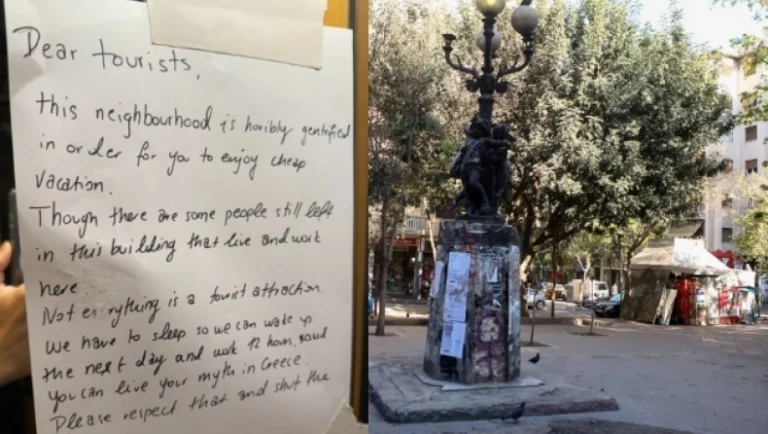 Dear tourists,
this neighbourhood is horibly gentrified
in order for you to enjoy cheap
vacation.
Though there are some people still left
in this building that live and work
here.
Not everything is a tourist attraction.
We have to sleep so we can wake up
the next day and work 12 hours,
you can live your myth in Greece.
Please respect that and shut the